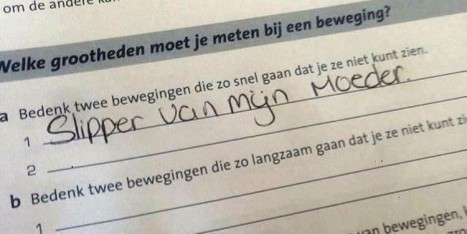 om de andere
Welke grootheden moet je meten bij een beweging?
a Bedenk twee bewegingen die zo snel gaan dat je ze niet kunt zien.
1 Slipper van mijn Moeder.
2
b Bedenk twee bewegingen die zo langzaam gaan dat je ze niet kunt
1
van bewegingen,